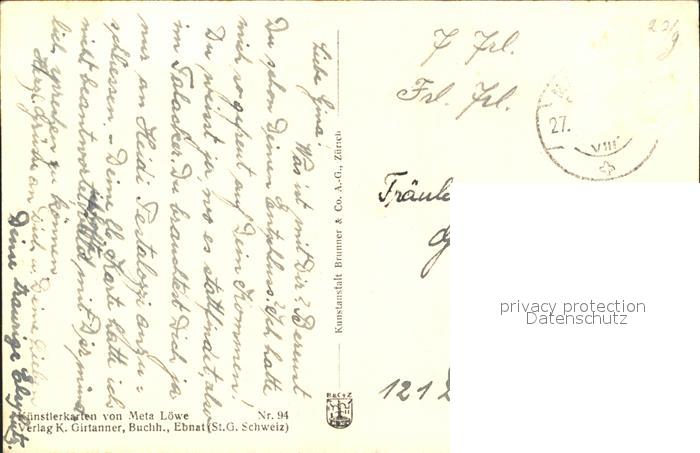 Liebe Gina!
Was ist mit Dir? Bereust
Du schon Deinen Entschluss? Ich hatte
mich so gefreut auf Dein Kommen!
Du weisst ja wo es stattfindet, aber
im Talacker. Du brauchtest Dich ja
nur an Heidi Pestalozzi anzu-
schliessen. - Deine lb. Karte hätte ich
nicht beantwortet, mit Dir münd-
lich sprechen zu können
Herzl. Grüsse an Dich u. Deine Lieben
Deine traurige
Künstlerkarten von Meta Löwe Nr. 94
Verlag K. Girtanner, Buchh., Ebnat (St.G. Schweiz)
Kunstanstalt Brunner & Co. A.-G., Zürich
B&CoZ
27.
VIII
Fräule
121
privacy protection
Datenschutz